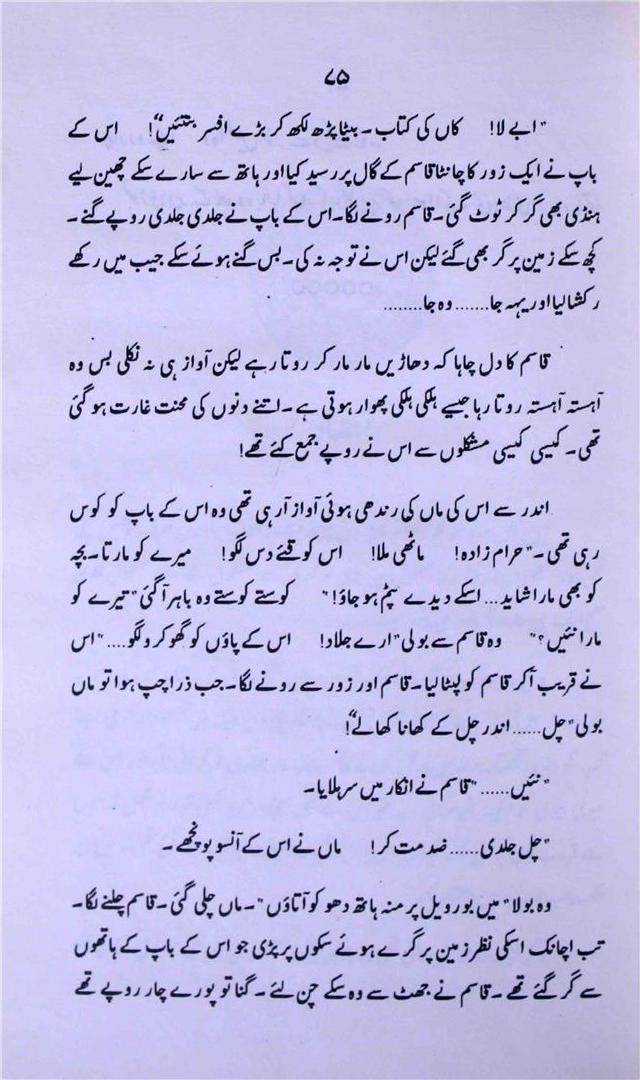 ۷۵
"ابے لا! کاں کی کتاب۔ بیٹا پڑھ لکھ کر بڑے افسر بنتئیں"! اس کے
باپ نے ایک زور کا چانٹا قاسم کے گال پر رسید کیا اور ہاتھ سے سارے سکے چھین لیے
ہنڈی بھی گر کر ٹوٹ گئی۔ قاسم رونے لگا۔ اس کے باپ نے جلدی جلدی روپے گنے۔
کچھ سکے زمین پر گر بھی گئے لیکن اس نے توجہ نہ کی۔ بس گنے ہوئے سکے جیب میں رکھے
رکشا لیا اور یہہ جا....... وہ جا........
قاسم کا دل چاہا کہ دھاڑیں مار مار کر روتا رہے لیکن آواز ہی نہ نکلی بس وہ
آہستہ آہستہ روتا رہا جیسے ہلکی ہلکی پھوار ہوتی ہے۔ اتنے دنوں کی محنت غارت ہو گئی
تھی۔ کیسی کیسی مشکلوں سے اس نے روپے جمع کئے تھے!
اندر سے اس کی ماں کی رندھی ہوئی آواز آرہی تھی وہ اس کے باپ کو کوس
رہی تھی۔ "حرام زادہ! ماٹھی ملا! اس کو قئے دس لگو! میرے کو مارتا۔ بچہ
کو بھی مارا شاید... اسکے دیدے سٹم ہو جاؤ!" کوستے کوستے وہ باہر آگئی "تیرے کو
مارا نئیں؟" وہ قاسم سے بولی "ارے جلاد! اس کے پاؤں کو گھوکرو لگو...." اس
نے قریب آکر قاسم کو لپٹالیا۔ قاسم اور زور سے رونے لگا۔ جب ذرا چپ ہوا تو ماں
بولی "چل...... اندر چل کے کھانا کھالے"!
"نئیں......" قاسم نے انکار میں سر ہلایا۔
"چل جلدی..... ضد مت کر! ماں نے اس کے آنسو پونچھے۔
وہ بولا "میں بورویل پر منہ ہاتھ دھو کو آتاؤں"۔ ماں چلی گئی۔ قاسم چلنے لگا۔
تب اچانک اسکی نظر زمین پر گرے ہوئے سکوں پر پڑی جو اس کے باپ کے ہاتھوں
سے گر گئے تھے۔ قاسم نے جھٹ سے وہ سکے چن لئے۔ گنا تو پورے چار روپے تھے